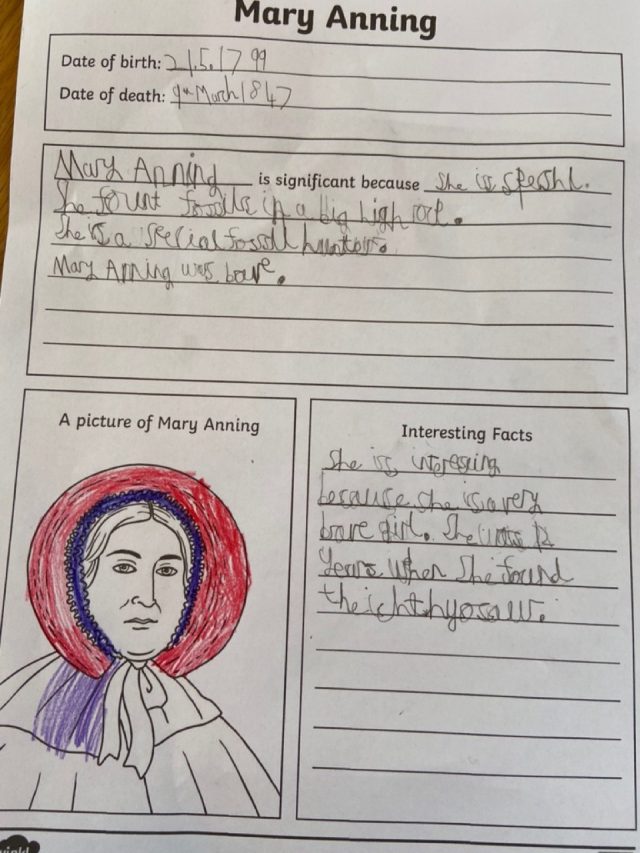 Mary Anning
Date of birth: 21.5.1799
Date of death: 9th March 1847
Mary Anning is significant because she is speshl.
She fount fossils in a big high
She is a special fossil
Mary Anning was bave.
A picture of Mary Anning
Interesting Facts
She is interesting
because she is a very
brave girl. She was 12
years when she found
the ichthyosaur.